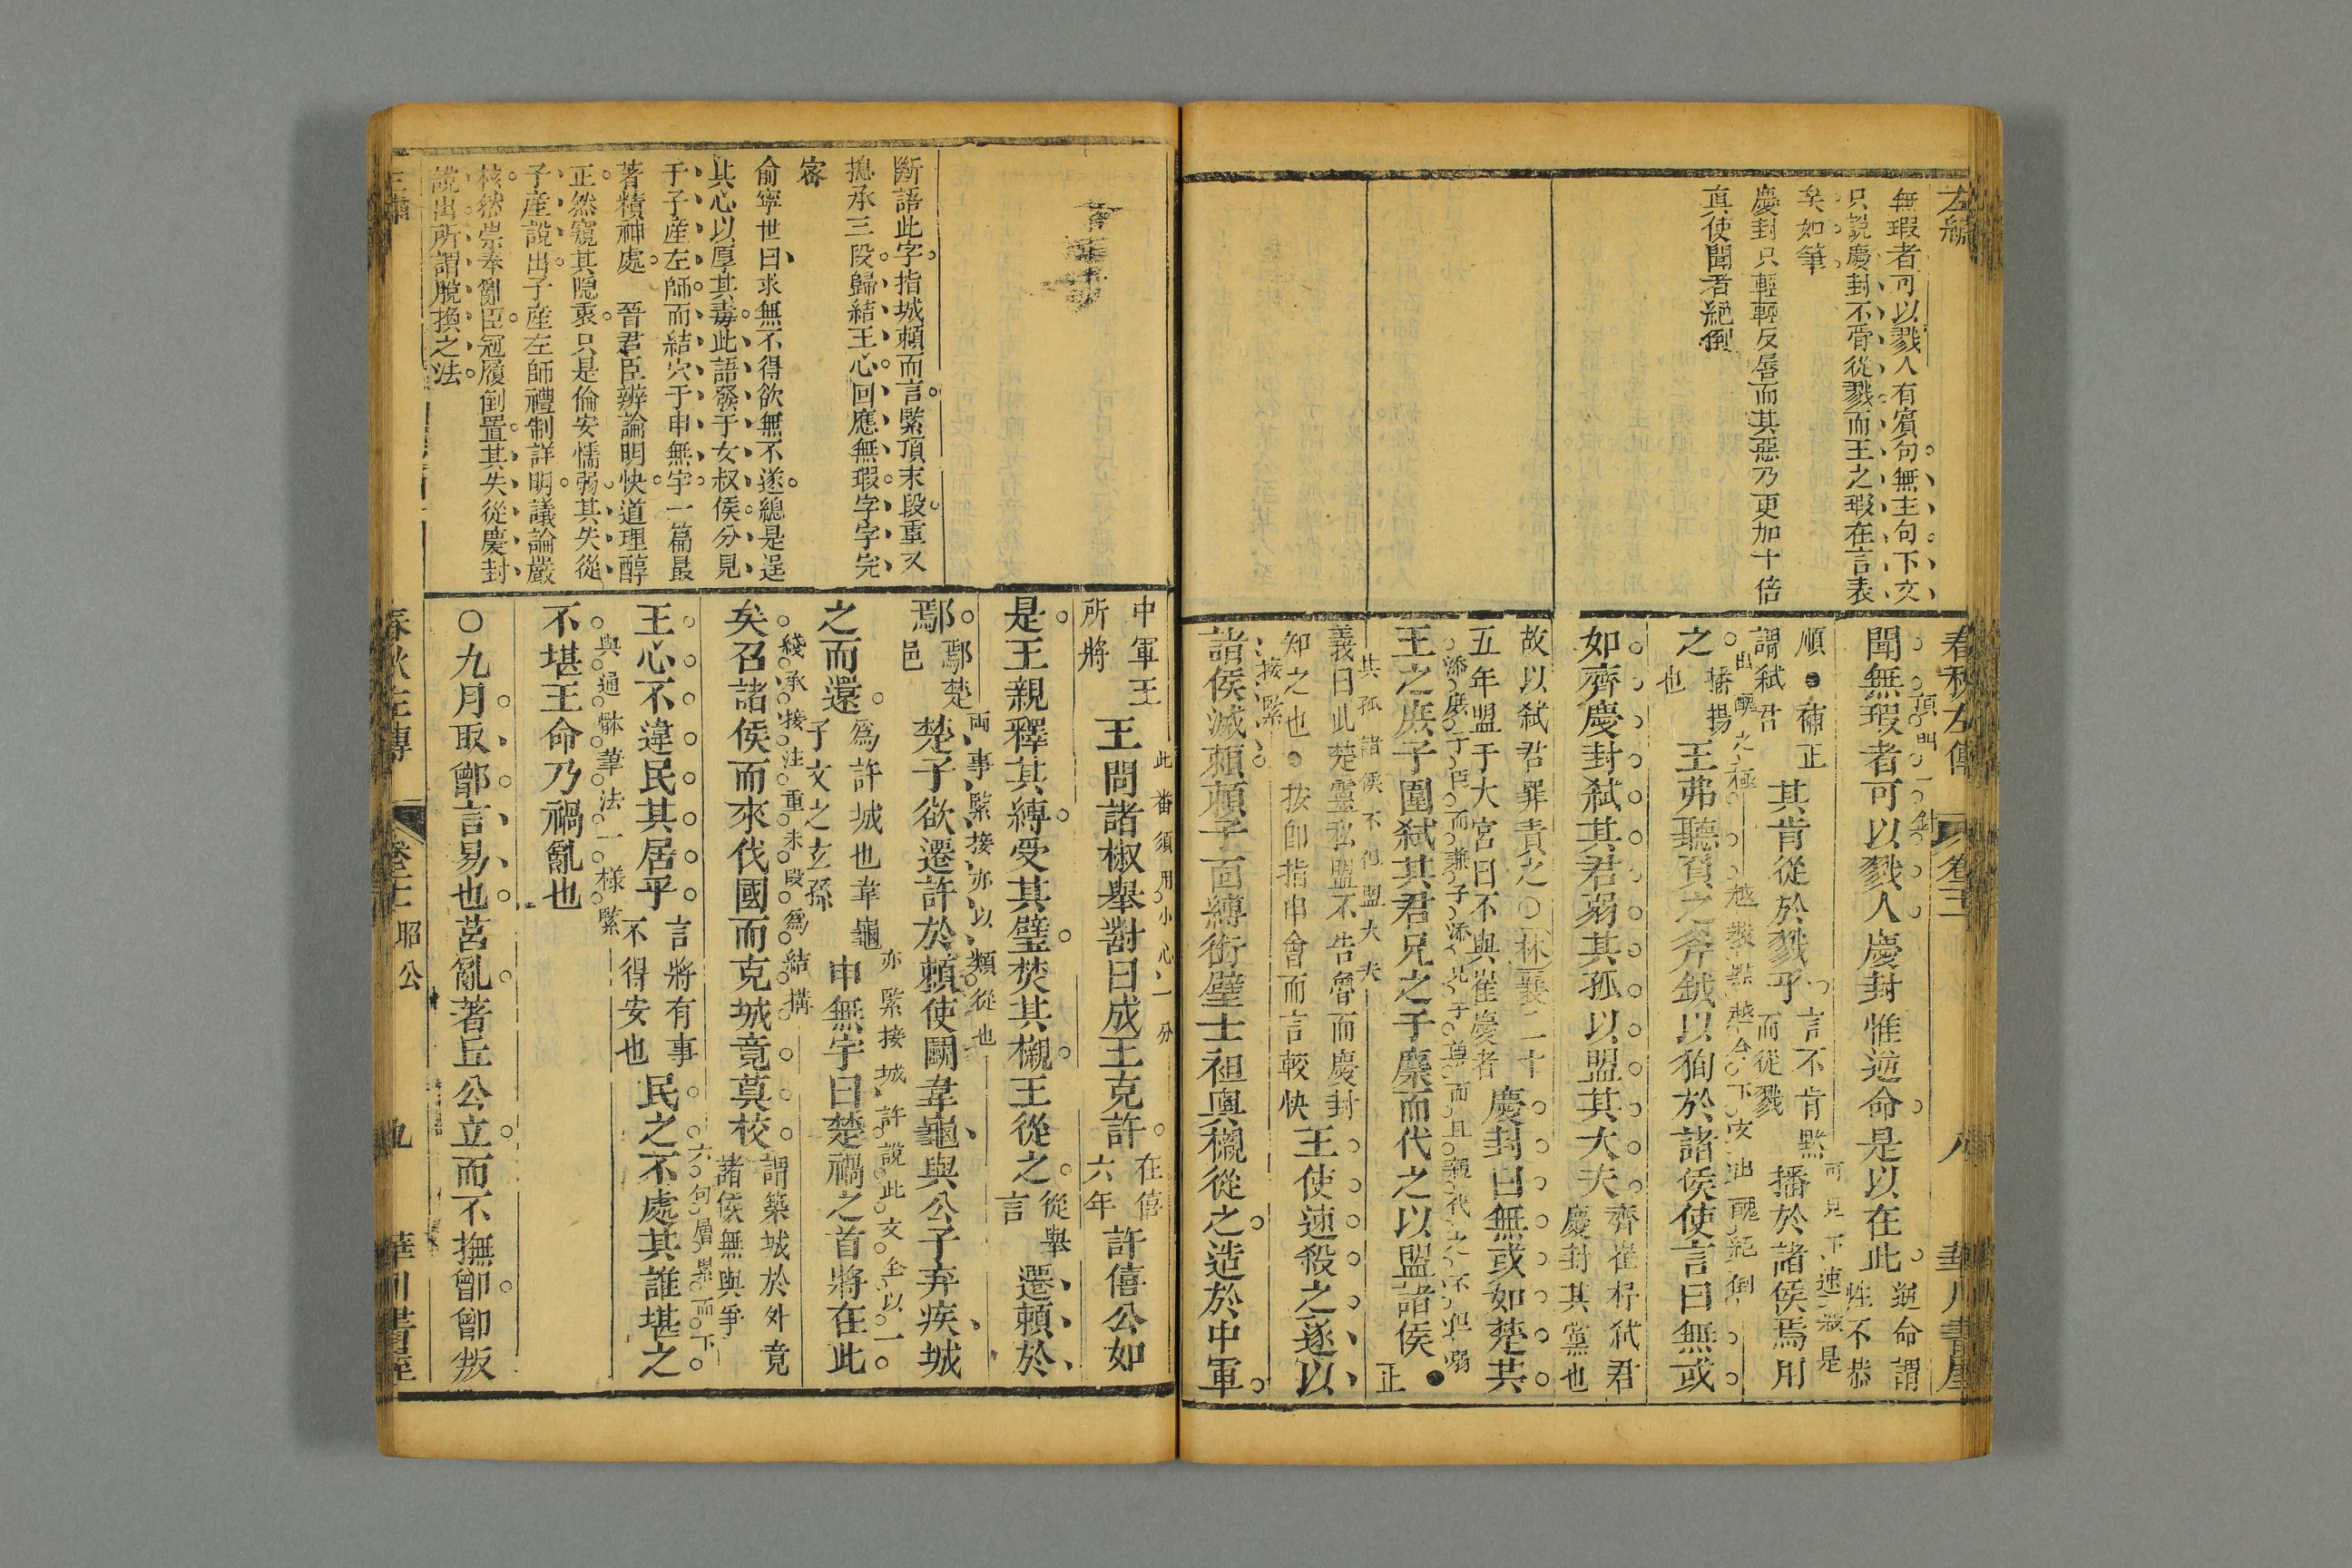 左繡
無瑕者可以戮人有賓句無主句下文
只說慶封不肯從戮而王之瑕在言表
矣如筆
慶封只輕輕反唇而其惡乃更加十倍
真使聞者絕倒
春秋左傳 卷二 八 華川書屋
頂門一針
聞無瑕者可以戮人慶封惟逆命是以在此 逆命謂
性不恭
順●補正
謂弑君
其肯從於戮乎 言不肯默
而從戮
可見下速殺是
播於諸侯焉用
出醜之極
之 播揚
也
王弗聽負之斧鉞以狥於諸侯使言曰無或
如齊慶封弑其君弱其孤以盟其大夫 齊崔杼弑君
慶封其黨也
故以弑君罪責之○林襄二十
五年盟于大宮曰不與崔慶者
慶封曰無或如楚共
王之庶子圍弑其君兄之子麇而代之以盟諸侯 ●正
其孤諸侯不但盟大夫
義曰此楚靈私盟不告魯而慶封
知之也●按卽指申會而言較快
王使速殺之遂以
接緊
諸侯滅賴賴子面縛銜璧士袒輿櫬從之造於中軍
斷語此字指城賴而言緊頂末段重又
摠承三段歸結王心回應無瑕字字完
密
俞寧世曰求無不得欲無不遂總是逞
其心以厚其毒此語發于女叔侯分見
于子産左師而結穴于申無宇一篇最
著精神處 晉君臣辨論明快道理醇
正然窺其隱衷只是倫安懦弱其失從
子産說出子産左師禮制詳明議論嚴
核然崇奉亂臣冠履倒置其失從慶封
說出所謂脫換之法
中軍王
所將
此番須用小心一分
王問諸椒舉對曰成王克許 在僖
六年
許僖公如
是王親釋其縛受其璧焚其櫬王從之 從舉
言
遷賴於
兩事緊接亦以類從也
鄢 鄢楚
邑
楚子欲遷許於賴使鬭韋龜與公子弃疾城
之而還 爲許城也韋龜
子文之玄孫
亦緊接城許說此文全以一
申無宇曰楚禍之首將在此
綫承接注重末段爲結搆
矣召諸侯而來伐國而克城竟莫校 謂築城於外竟
諸侯無與爭
六句層累而下
王心不違民其居乎 言將有事
不得安也
民之不處其誰堪之
與通體筆法一樣緊
不堪王命乃禍亂也
○九月取鄫言易也莒亂著丘公立而不撫鄫鄫叛
春秋左傳 昭公 九 華川書屋